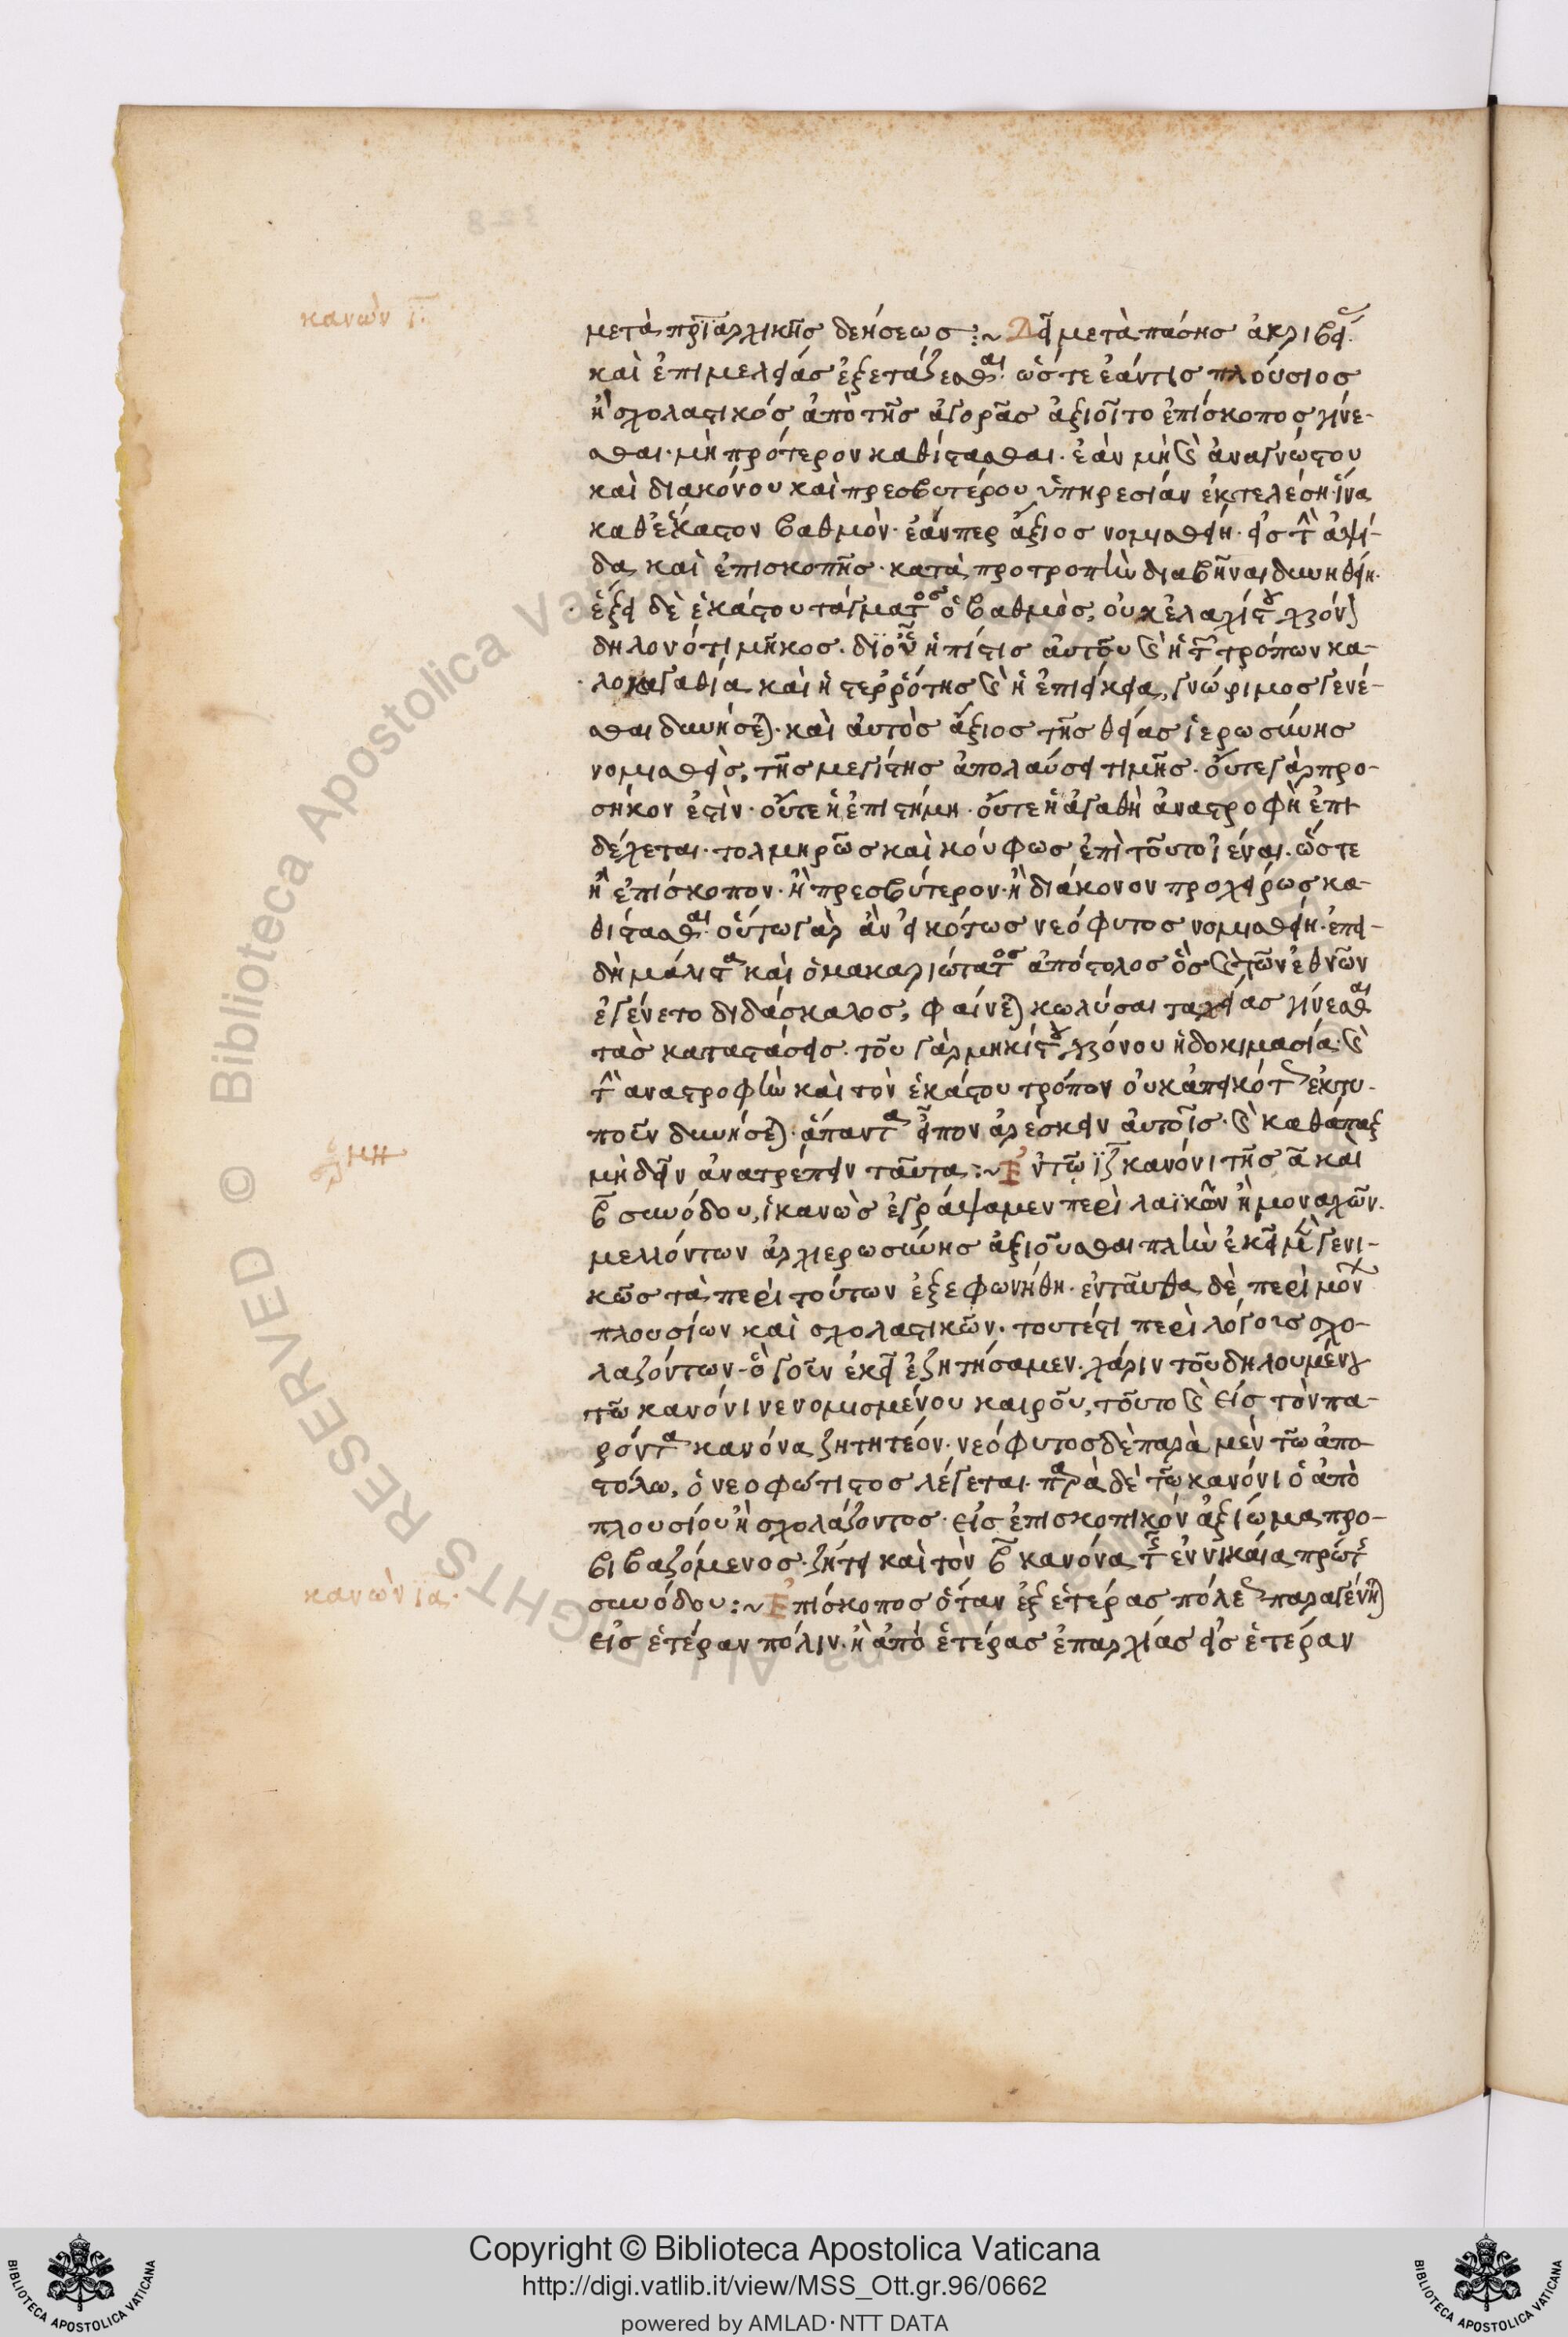 κανὼν ϊ:
μετὰ πρϊαρχικῆς δεήσεως :~ Δεῖ μετὰ πάσης ἀκριβεί
καὶ ἐπιμελείας ἐξετάζεσθαι· ὥστε ἐάν τις πλούσιος
ἢ σχολαστικός ἀπὸ τῆς ἀγορᾶς ἀξιοῖτο ἐπίσκοπος γίνε-
σθαι· μὴ πρότερον καθίστασθαι· ἐὰν μὴ καὶ ἀναγνώστου
καὶ διακόνου καὶ πρεσβυτέρου ὑπηρεσίαν ἐκτελέση· ἵνα
καθ' ἕκαστον βαθμὸν· ἐάνπερ ἄξιος νομισθείη· εἰς τὴν ἁψί-
δα καὶ ἐπισκοπῆς· κατὰ προτροπὴν διαβῆναι δυνηθείη·
ἕξει δὲ ἑκάστου τάγματος ὁ βαθμὸς, οὐκ ἐλαχίστου χρόν
δηλονότι μῆκος· δι' οὗ ἡ πίστις αὐτοῦ καὶ ἡ τῶν τρόπων κα-
λοκαγαθία καὶ ἡ στερρότης καὶ ἡ ἐπιείκεια, γνώριμος γενέ-
σθαι δυνήσεται· καὶ αὐτὸς ἄξιος τῆς θείας ἱερωσύνης
νομισθεὶς, τῆς μεγίστης ἀπολαύσει τιμῆς· οὔτε γὰρ προ-
σῆκον ἐστὶν· οὔτε ἡ ἐπιστήμη· οὔτε ἡ ἀγαθὴ ἀναστροφὴ ἐπι
δέχεται· τολμηρῶς καὶ κούφως ἐπὶ τοῦτο ἰέναι· ὥστε
ἢ ἐπίσκοπον· ἢ πρεσβύτερον· ἢ διάκονον προχείρως κα-
θίστασθαι· οὕτω γὰρ ἂν εἰκότως νεόφυτος νομισθείη· ἐπει-
δὴ μάλιστα καὶ ὁ μακαριώτατος ἀπόστολος ὃς καὶ τῶν ἐθνῶν
ἐγένετο διδάσκαλος, φαίνεται κωλύσαι ταχείας γίνεσθαι
τὰς καταστάσεις· τοῦ γὰρ μηκίστου χρόνου ἡ δοκιμασία· καὶ
τὴν ἀναστροφὴν καὶ τὸν ἑκάστου τρόπον οὐκ ἀπεικότως ἐκτυ-
ποῦν δυνήσεται· ἅπαντα εἶπον ἀρέσκειν αὐτοῖς· καὶ καθάπαξ
μὴ δεῖν ἀνατρέπειν ταῦτα :~ Ἐν τῶ ϊζ κανόνι τῆς α καὶ
β συνόδου, ἱκανῶς ἐγράψαμεν περὶ λαϊκῶν ἢ μοναχῶν·
μελλόντων ἀρχιερωσύνης ἀξιοῦσθαι πλὴν ἐκεῖ μὲν γενι-
κῶς τὰ περὶ τούτων ἐξεφωνήθη· ἐνταῦθα δὲ περὶ μόνων
πλουσίων καὶ σχολαστικῶν· τουτέστι περὶ λόγοις σχο-
λαζόντων· ὃ γοῦν ἐκεῖ ἐζητήσαμεν· χάριν τοῦ δηλουμένου
τῶ κανόνι νενομισμένου καιροῦ, τοῦτο καὶ εἰς τὸν πα-
ρόντα κανόνα ζητητέον· νεόφυτος δὲ παρὰ μὲν τῶ ἀπο-
στόλω, ὁ νεοφώτιστος λέγεται· παρὰ δὲ τῶ κανόνι ὁ ἀπὸ
πλουσίου ἢ σχολάζοντος· εἰς ἐπισκοπικὸν ἀξίωμα προ-
βιβαζόμενος· ζήτει καὶ τὸν β κανόνα τῆς ἐν νικαία πρώτης
κανὼν ϊα·
συνόδου :~ Ἐπίσκοπος ὅταν ἐξ ἑτέρας πόλεως παραγένηται
εἰς ἑτέραν πόλιν· ἢ ἀπὸ ἑτέρας ἐπαρχίας εἰς ἑτέραν
Copyright © Biblioteca Apostolica Vaticana
http://digi.vatlib.it/view/MSS_Ott.gr.96/0662
powered by AMLAD·NTT DATA
BIBLIOTECA APOSTOLICA VATICANA
BIBLIOTECA APOSTOLICA VATICANA